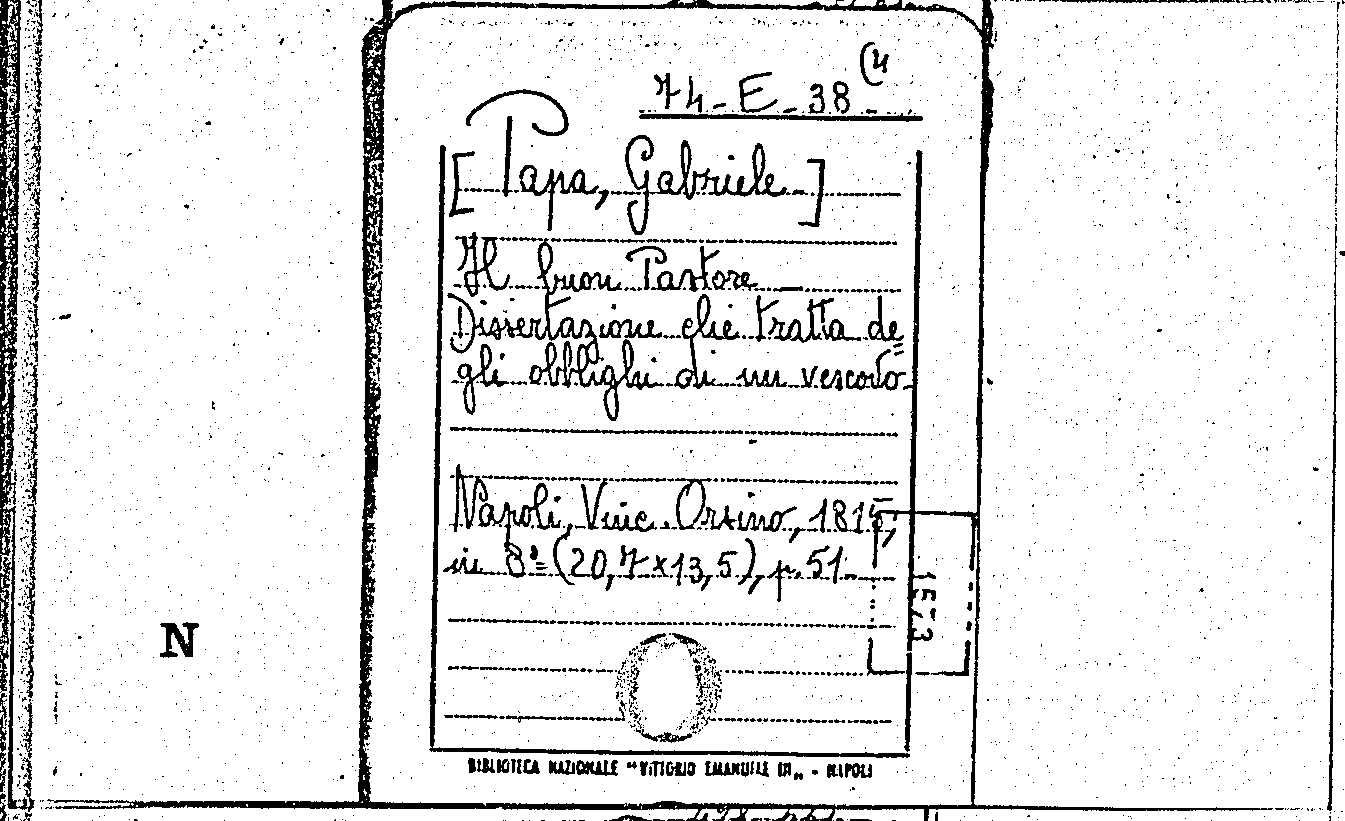 74-E-38 (4
[Papa, Gabriele-]
Il buon Pastore
Dissertazione che tratta de=
gli obblighi di un vescovo.
Napoli, Vinc. Orsino, 1815,
in 8º (20,7x13,5), p. 51.
1573
N
BIBLIOTECA NAZIONALE "VITTORIO EMANUELE III" - NAPOLI